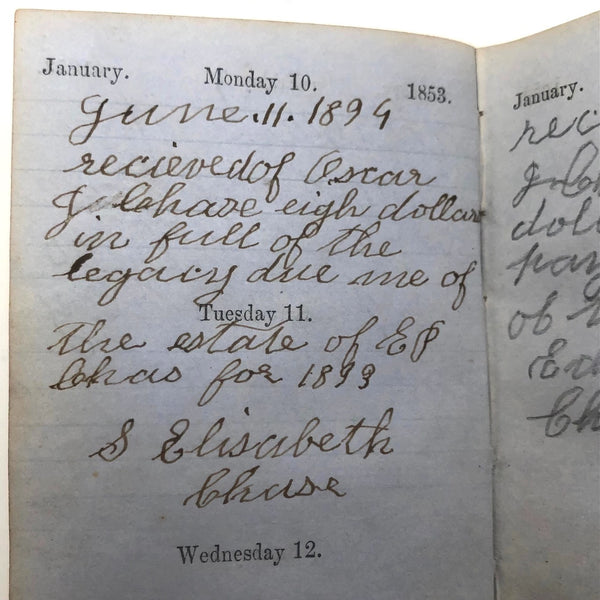 January. Monday 10. 1853.
June. 11. 1894
recieved of Oscar
J Chase eigh dollars
in full of the
legacy due me of
Tuesday 11.
the estate of EP
Chas for 1893
S Elisabeth
Chase
Wednesday 12.
January.